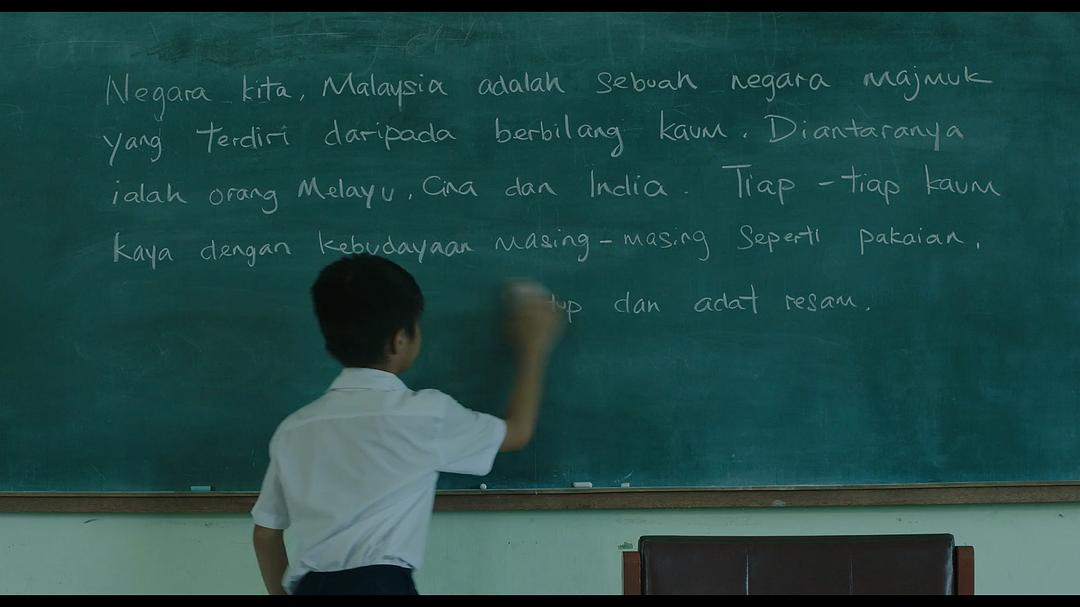 Negara kita, Malaysia adalah sebuah negara majmuk
yang Terdiri daripada berbilang kaum. Diantaranya
ialah orang Melayu, Cina dan India. Tiap-tiap kaum
kaya dengan kebudayaan masing-masing seperti pakaian,
dan adat resam.